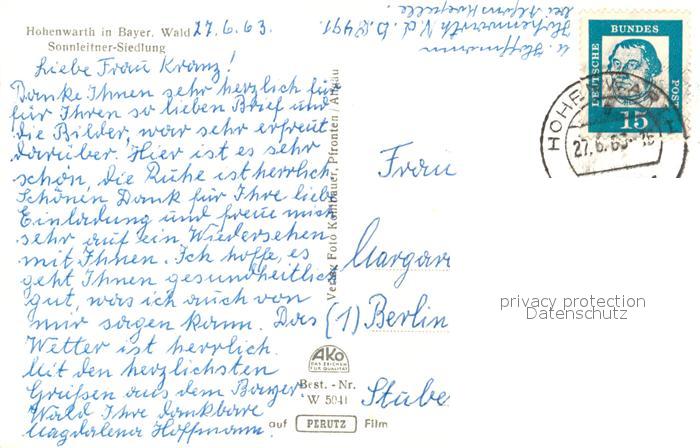 Hohenwarth in Bayer. Wald 27.6.63.
Sonnleitner-Siedlung
Liebe Frau Kranz!
Danke Ihnen sehr herzlich für
für Ihren so lieben Brief und
die Bilder, war sehr erfreut
darüber. Hier ist es sehr
schön, die Ruhe ist herrlich
Schönen Dank für Ihre liebe
Einladung und freue mich
sehr auf ein Wiedersehen
mit Ihnen. Ich hoffe, es
geht Ihnen gesundheitlich
gut, was ich auch von
mir sagen kann. Das
Wetter ist herrlich.
Mit den herzlichsten
Grüßen aus dem Bayer.
Wald Ihre dankbare
Magdalena Hoffmann.
M. Hoffmann
Hohenwarth N.d.B. 8491
bei Alfons
Verlag Foto Kohlbauer, Pfronten / Allgäu
AKO
DAS ZEICHEN
FÜR QUALITÄT
Best. - Nr.
W 5041
auf PERUTZ Film
DEUTSCHE BUNDESPOST
15
HOHENWARTH
27.6.63
Frau
Margar
(1) Berlin
Stube
privacy protection
Datenschutz